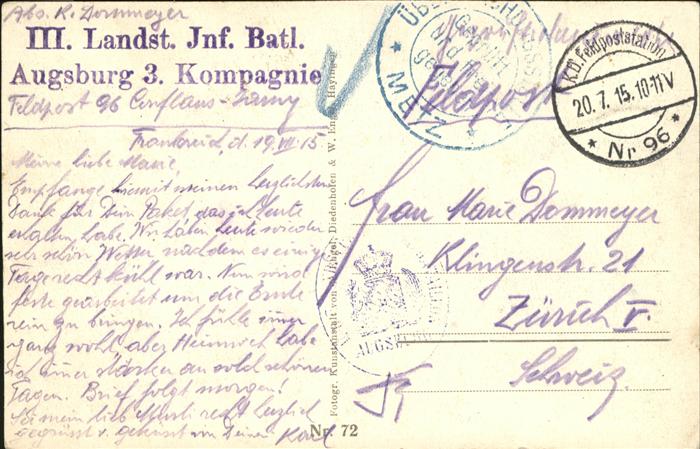 Abs. K. Dommeyer
III. Landst. Inf. Batl.
Augsburg 3. Kompagnie
Feldpost 96 Conflans-Jarny
Frankreich, d. 19.VII.15
Meine liebe Marie,
Empfange hiemit meinen herzlichsten
Dank für Dein Paket, das ich heute
erhalten habe. Wir haben heute wieder
sehr schön Wetter nachdem es einige
Tage recht kühl war. Nun wird
feste gearbeitet um die Ernte
rein zu bringen. Ich fühle immer
ganz wohl aber Heimweh habe
ich immer stärker an solch schönen
Tagen. Brief folgt morgen!
Sei mein lieb recht herzlich
gegrüsst u. geküsst von Deinem Karl
Photogr. Kunstanstalt von W. Engel, Diedenhofen & W. Engel, Hayingen
Nr. 72
Feldpost
K.D. Feldpoststation
20. 7. 15. 10-11 V
* Nr 96 *
Frau Marie Dommeyer
Klingenstr. 21
Zürich V.
Schweiz.
AUGSBURG